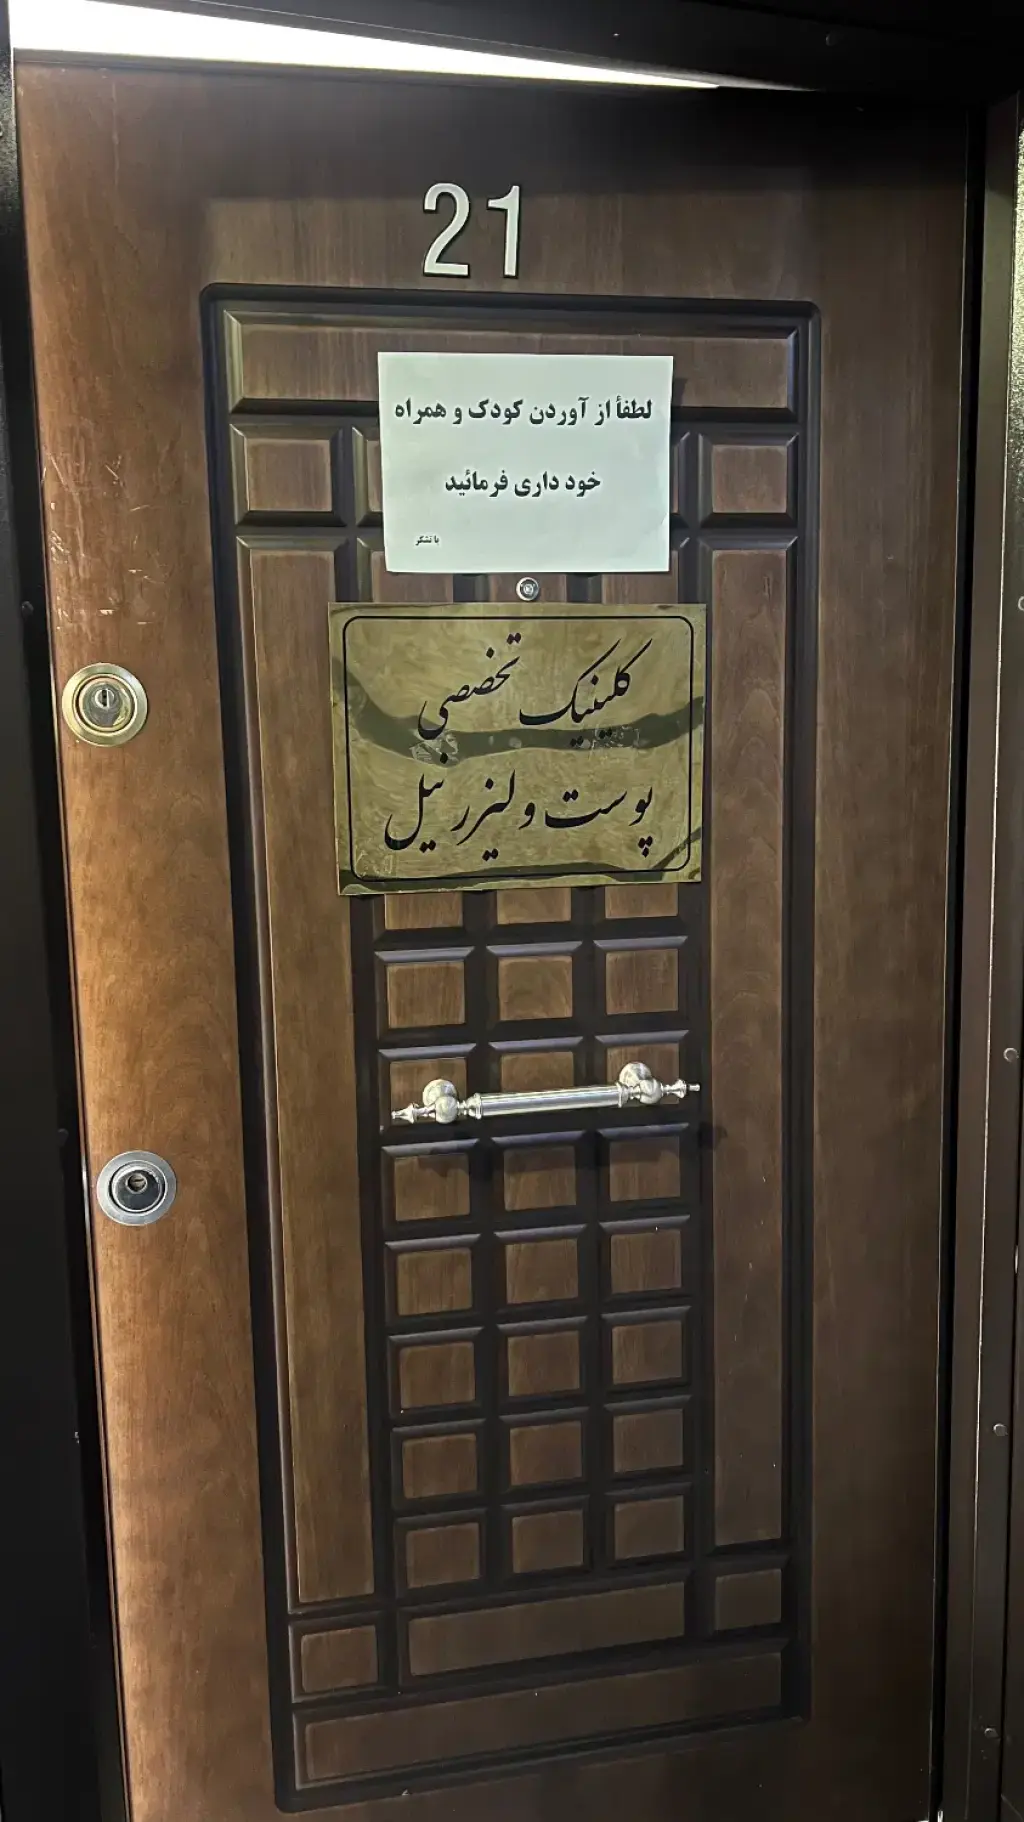 21
لطفأ از آوردن کودک و همراه
خود داری فرمائید
با تشکر
کلینیک تخصصی
پوست و لیزر نیل